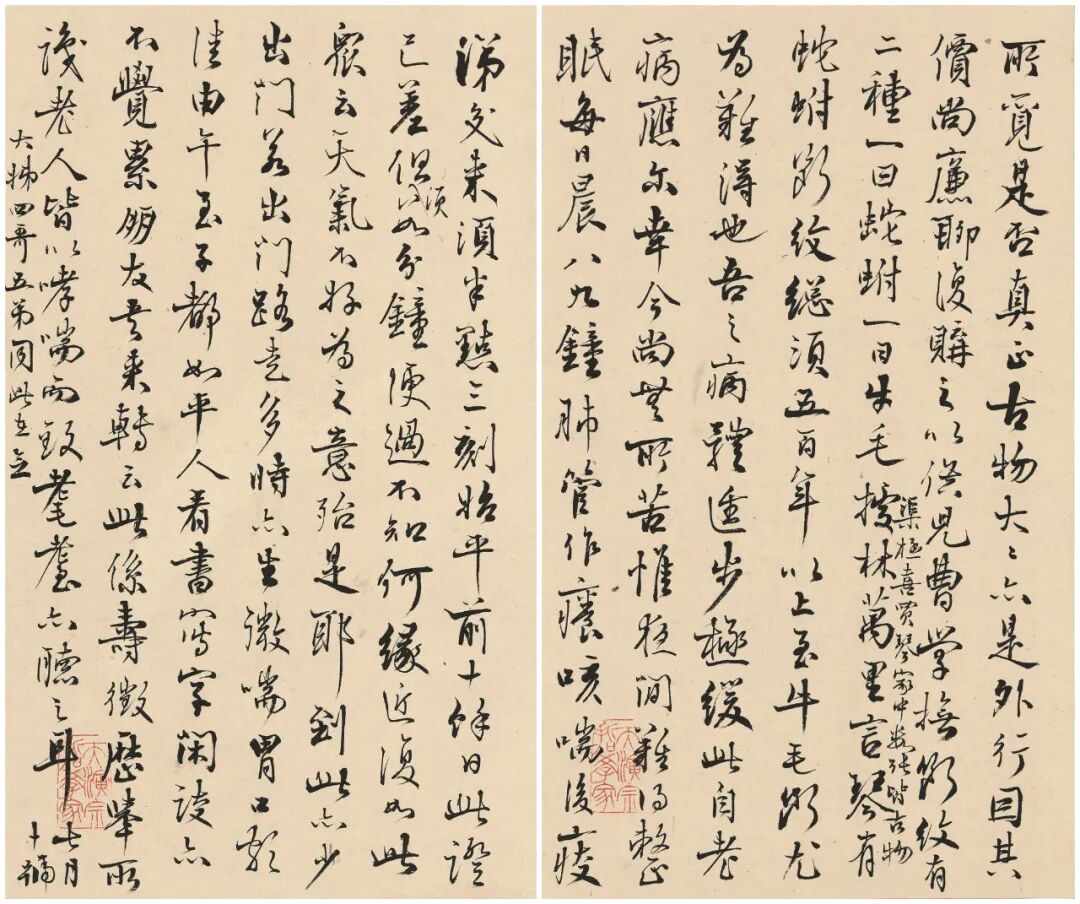 所覓是否真正古物大大亦是外行因其
價尚廉聊復購之以供兒曹學撫斷紋有
二種一曰蛇蚹一曰牛毛據林萬里言琴有
渠極喜買琴家中數張皆古物
蛇蚹斷紋總須五百年以上至牛毛斷尤
為難得也吾之病體進步極緩此自老
病應爾幸今尚無所苦惟夜間難得整
眠每日晨八九鐘肺管作癢咳喘後痰
天演宗哲學家
涕交來須半點三刻始平前十餘日此證
已差但須分鐘便過不知何緣近復如此
眾云天氣不好為之意殆是耶到此亦少
出門若出門路走多時亦生微喘胃口頗
佳由午至子都如平人看書寫字閑談亦
不覺累朋友來轉云此係壽徵歷舉所
識老人皆以哮喘而致耄耋亦聽之耳
七月十號
大姊四哥五弟同此
天演宗哲學家